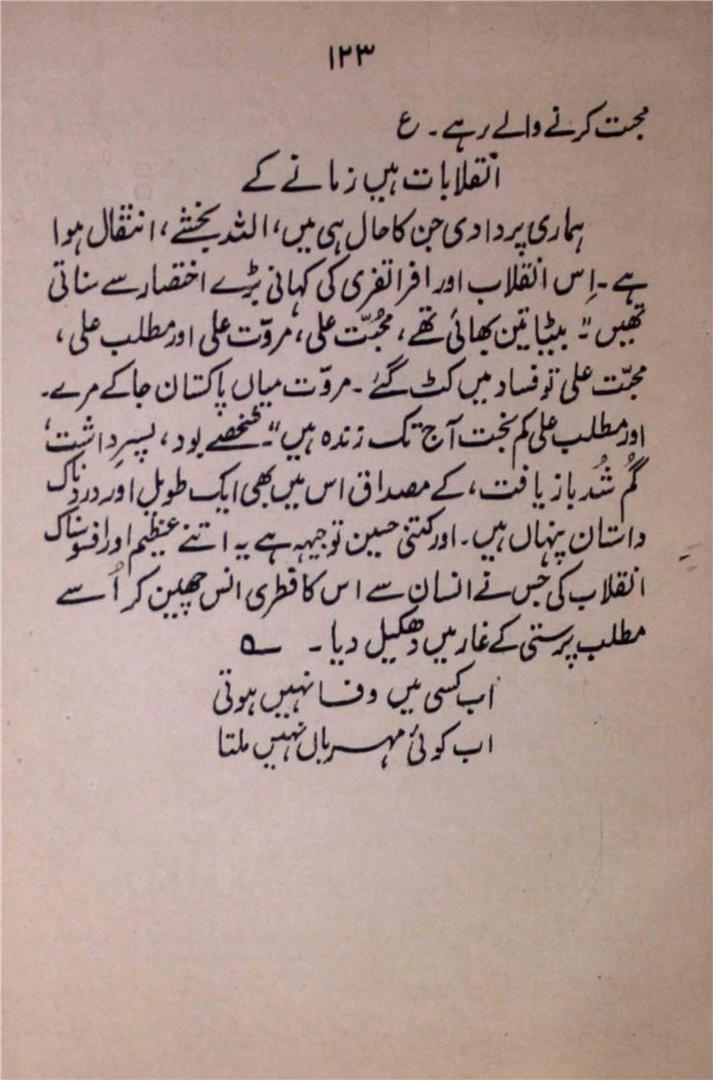 ۱۲۳
محبت کرنے والے رہے۔ ع
انقلابات ہیں زمانے کے
ہماری پردادی جن کا حال ہی میں، اللہ بخشے، انتقال ہوا
ہے۔ اِس انقلاب اور افراتفری کی کہانی بڑے اختصار سے سناتی
تھیں "۔ بیٹا تین بھائی تھے، محبّت علی، مروّت علی اور مطلب علی،
محبّت علی تو فساد میں کٹ گئے۔ مروّت میاں پاکستان جا کے مرے۔
اور مطلب علی کم بخت آج تک زندہ ہیں"۔ شخصے بود، پسرِ داشت،
گُم شُد باز یافت، کے مصداق اس میں بھی ایک طویل اور دردناک
داستان پنہاں ہیں۔ اور کتنی حسین توجیہہ ہے یہ اتنے عظیم اور افسوسناک
انقلاب کی جس نے انسان سے اس کا فطری انس چھین کر اُسے
مطلب پرستی کے غار میں دھکیل دیا۔ ؎
اب کسی میں وفا نہیں ہوتی
اب کوئی مہرباں نہیں ملتا